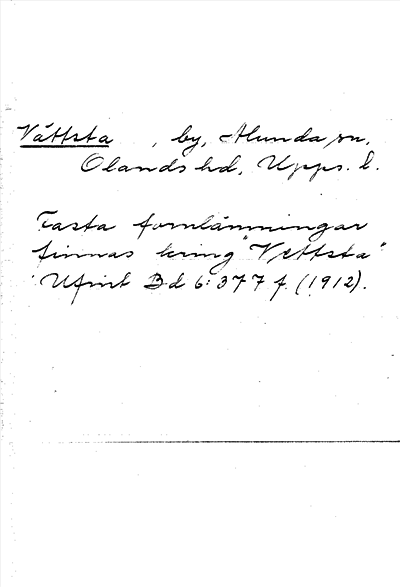 Vättsta , by, Alunda sn,
Olands hd, Upps. l.
Fasta fornlämningar
finnas kring "Vettsta"
Ufmt Bd 6: 377 f. (1912).